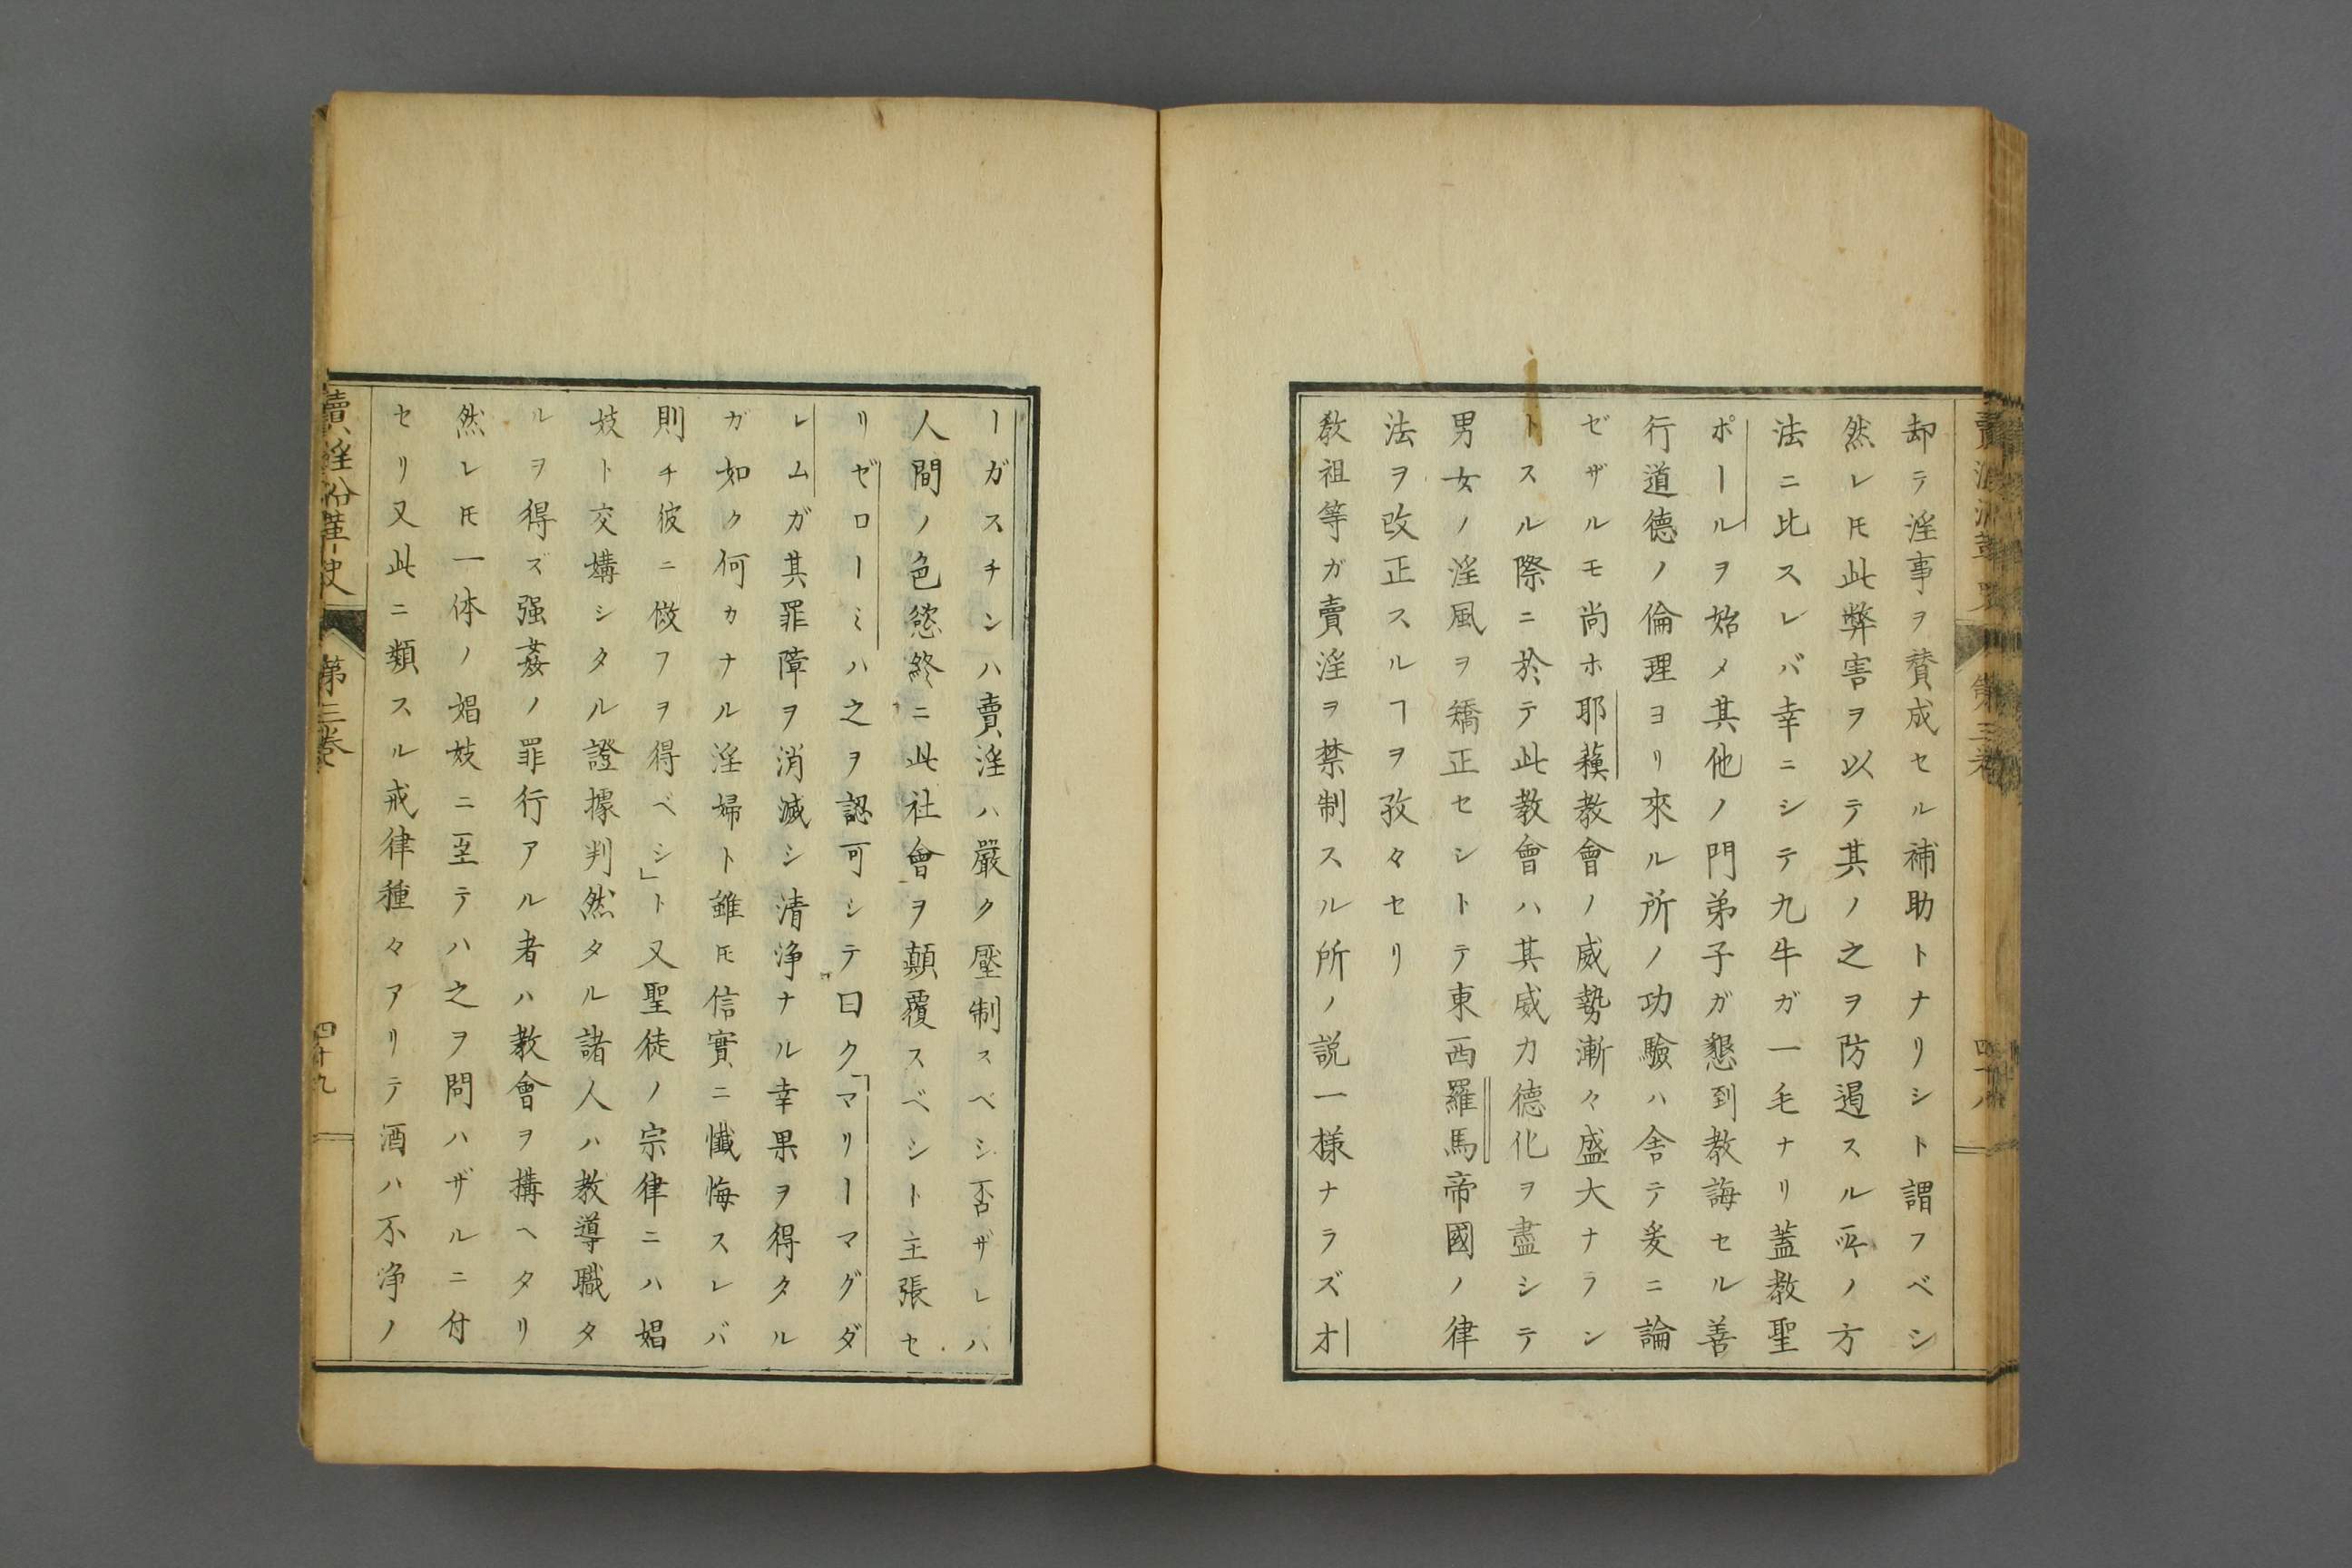 賣淫沿革史 第三巻 四十八
却テ淫事ヲ賛成セル補助トナリシト謂フベシ
然レ𪜈此弊害ヲ以テ其ノ之ヲ防遏スル所ノ方
法ニ比スレバ幸ニシテ九牛ガ一毛ナリ蓋教聖
ポールヲ始メ其他ノ門弟子ガ懇到教誨セル善
行道德ノ倫理ヨリ來ル所ノ功驗ハ舍テ爰ニ論
ゼザルモ尚ホ耶蘓教會ノ威勢漸々盛大ナラン
トスル際ニ於テ此教會ハ其威力德化ヲ盡シテ
男女ノ淫風ヲ矯正セシトテ東西羅馬帝國ノ律
法ヲ改正スルヿヲ孜々セリ
教祖等ガ賣淫ヲ禁制スル所ノ説一様ナラズオ
ーガスチンハ賣淫ハ嚴ク壓制スベシ否ザレハ
人間ノ色慾終ニ此社會ヲ顛覆スベシト主張セ
リゼローミハ之ヲ認可シテ曰ク「マリーマグダ
レムガ其罪障ヲ消滅シ清浄ナル幸果ヲ得タル
ガ如ク何カナル淫婦ト雖𪜈信實ニ懺悔スレバ
則チ彼ニ倣フヲ得ベシ」ト又聖徒ノ宗律ニハ娼
妓ト交媾シタル證據判然タル諸人ハ教導職タ
ルヲ得ズ强姦ノ罪行アル者ハ教會ヲ搆ヘタリ
然レ𪜈一体ノ娼妓ニ至テハ之ヲ問ハザルニ付
セリ又此ニ類スル戒律種々アリテ酒ハ不浄ノ
賣淫沿革史 第三巻 四十九